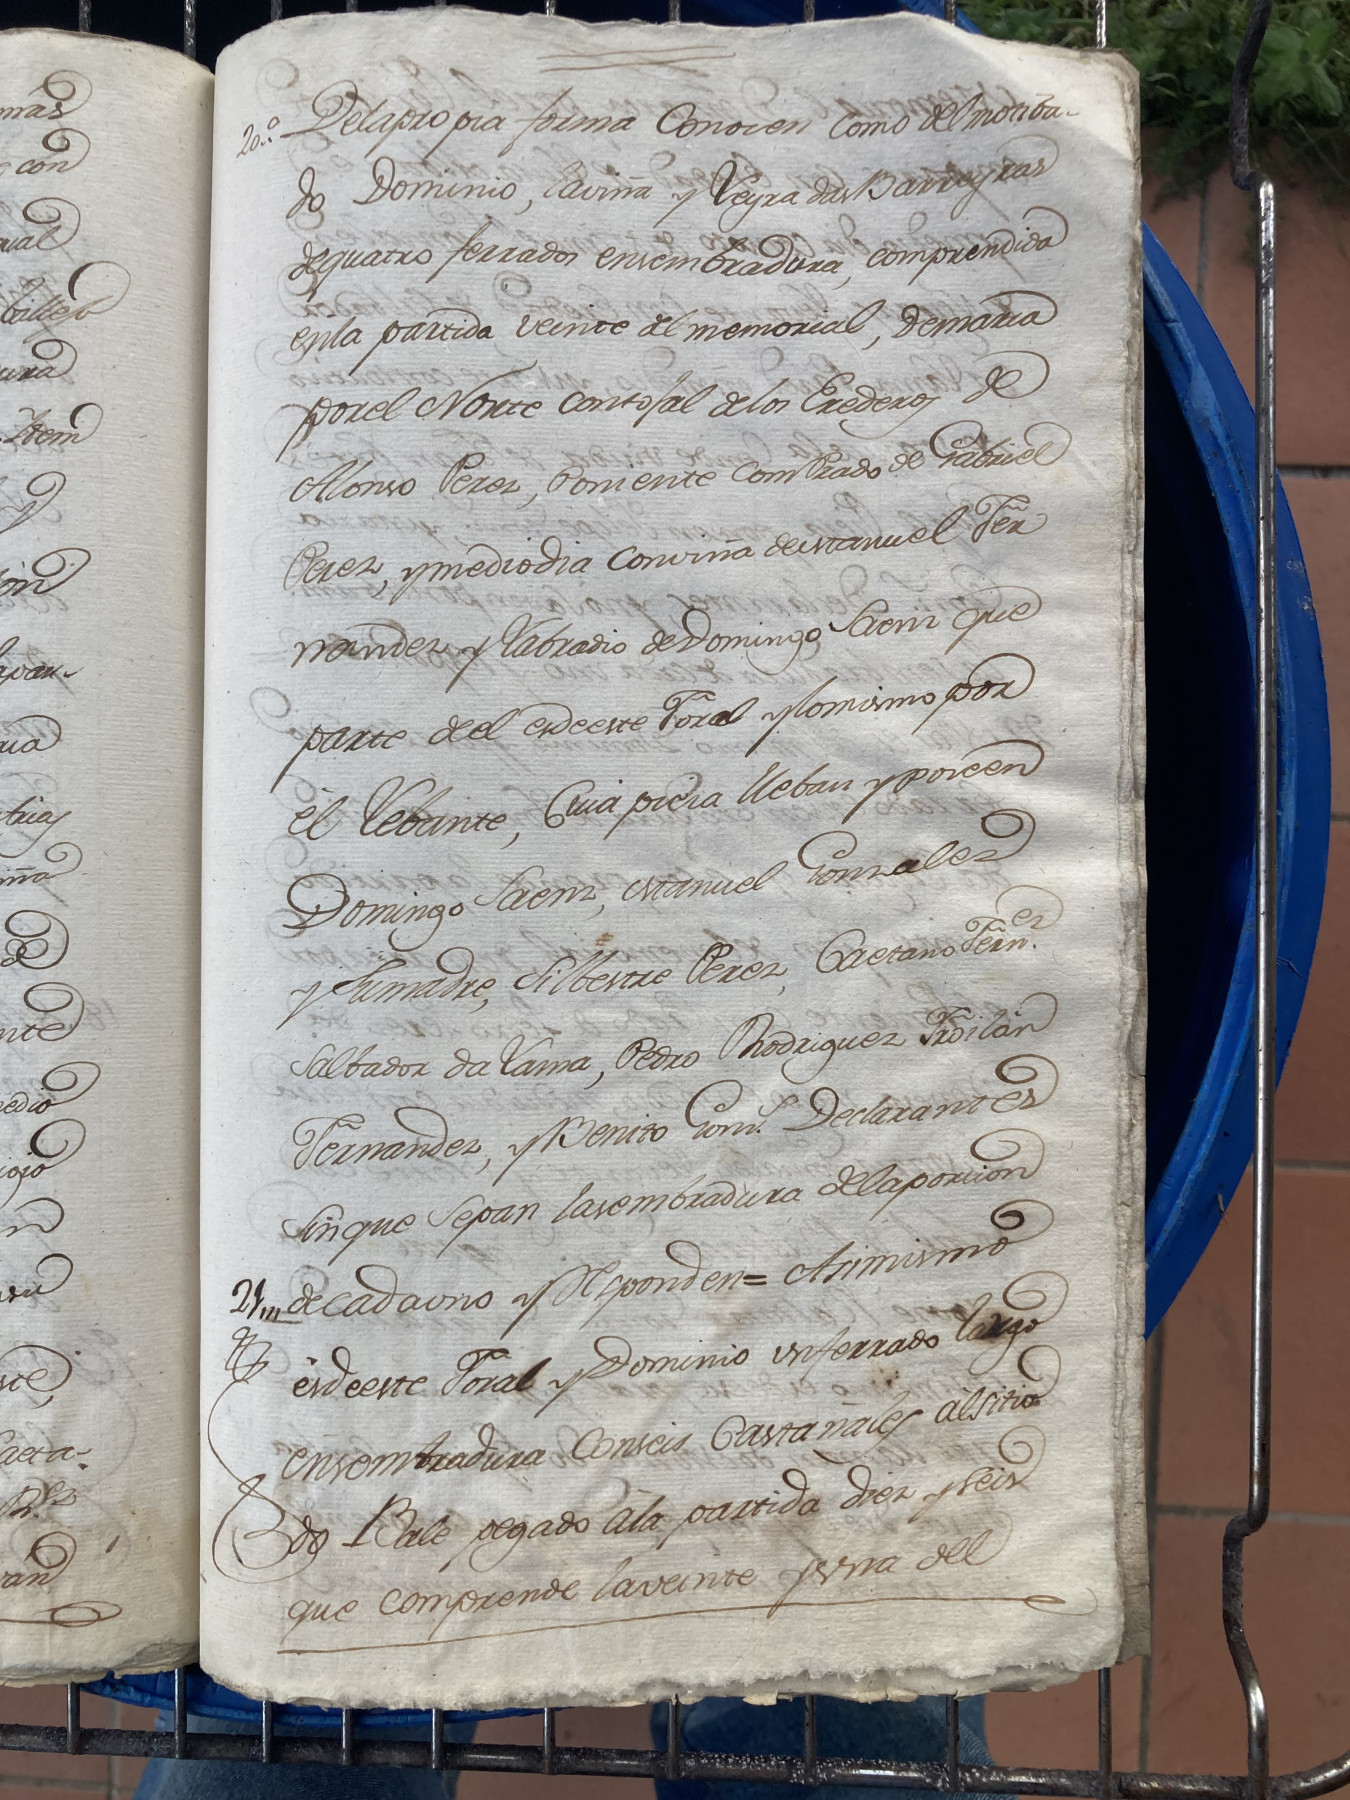 20.º Delapropia forma Conocen como del motiba-
do Dominio, laviña y Veyra das Barreyras
dequatro ferrados ensembradura, comprendida
enla partida veinte del memorial, Demarca
porel Norte contojal delos Erederos de
Alonso Perez, Poniente conPrado de Gabriel
Perez, y mediodia conviña de Manuel Fer
nandez y labradio de Domingo Saenz que
parte del es deeste Foral y lomismo por
èl Lebante, Cuia pieza lleban y poseen
Domingo Saenz, Manuel Gonzalez
y Sumadre, Silbestre Perez, Caetano Fern.ez
Salbador da Lama, Pedro Rodriguez Froilán
Fernandez, y Benito Gonz. Declarantes
Sinque Sepan lasembradura delaporcion
21 de cadauno y Responden = Asimismo
ès deeste Foral y Dominio un ferrado largo
ensembradura Conseis Castañales àlsitio
do Bale pegado àla partida diez y seis
que comprende laveinte y una del
mas
con
ual
ura
Item
y
uia
iña
de
nte
edio
n